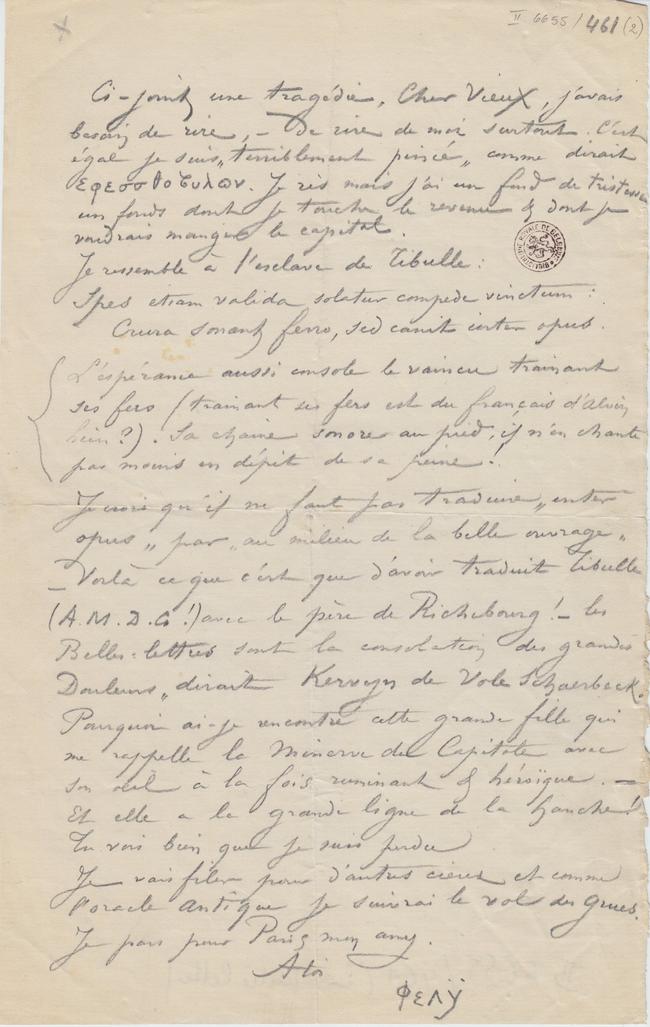 II 6655 / 461 (2)
Ci-joint une tragédie, Cher Vieux, j'avais
besoin de rire, – De rire de moi surtout. C'est
égal je suis „terriblement pincé„ comme dirait
Je ris mais j'ai un fond de tristesse
un fonds dont je touche le revenu & dont je
voudrais manger le capital.
Je ressemble à l'esclave de Tibulle :
Spes etiam valida solatur compede vinctum :
Crura sonant ferro, sed canit inter opus.
L'espérance aussi console le vaincu trainant
ses fers (trainant ses fers est du français d'Alvin
hein ?). Sa chaine sonore au pied, il n'en chante
pas moins en dépit de sa peine !
Je crois qu'il ne faut pas traduire „inter
opus„ par „au milieu de la belle ouvrage„
– Voilà ce que c'est que d'avoir traduit Tibulle
(A.M.D.G !) avec le père de Richebourg ! – les
Belles-lettres sont la consolation des grandes
Douleurs„ dirait Kervyn de Vole Schaerbeck.
Pourquoi ai-je rencontré cette grande fille qui
me rappelle la Minerve du Capitole avec
son œil à la fois ruminant & héroïque. –
Et elle a la grande ligne de la hanche !
Tu vois bien que je suis perdu
Je vais filer pour d'autres cieux et comme
l'oracle antique je suivrai le vol des grues.
Je pars pour Paris mon amy.
A toi
ΦΕΛΫ